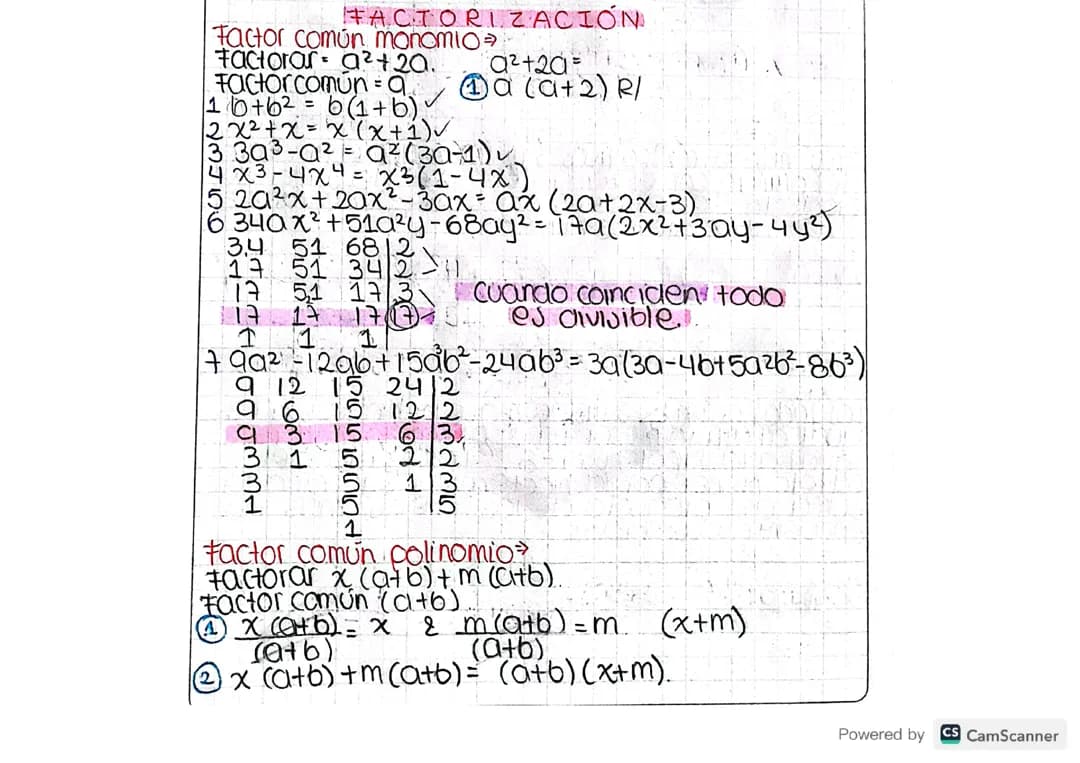 FACTORIZACIÓN
Factor común monomio⇒
Factorar = a²+2a. a²+2a=
Factor común = a ① a (a+2) R/
1 b+b² = b(1+b)✓
2 x²+x = x (x+1)✓
3 3a³-a² = a²(3a-1)✓
4 x³-4x⁴ = x³(1-4x)
5 2a²x+2ax²-3ax= ax (2a+2x-3)
6 34ax²+51a²y-68ay² = 17a(2x²+3ay-4y²)
34 51 68|2
17 51 34|2
17 51 17|3 cuando coinciden todo
17 17 17|17 es divisible.
1 1 1
7 9a²-12ab+15a³b²-24ab³ = 3a(3a-4b+5a2b²-8b³)
9 12 15 24|2
9 6 15 12|2
9 3 15 6|3
3 1 5 2|2
3 5 1|3
1 5 |5
1
Factor común polinomio⇒
Factorar x (a+b)+m (a+b).
Factor común (a+b).
① x (a+b) = x & m (a+b) = m. (x+m)
(a+b) (a+b)
② x (a+b)+m(a+b)= (a+b)(x+m).
Powered by CS CamScanner